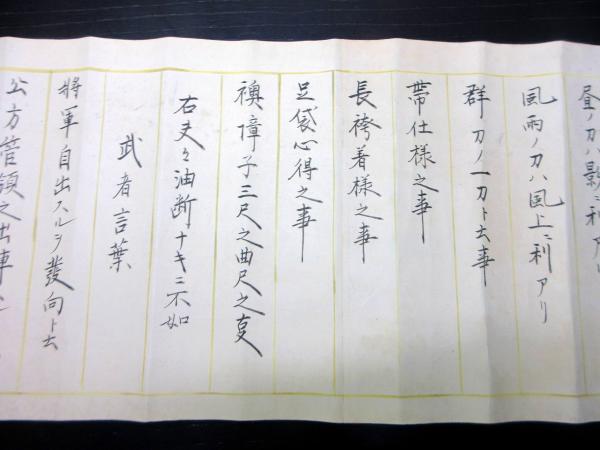 昼ノ刀ハ影ニ利アリ
風雨ノ刀ハ風上ニ利アリ
群刀ノ一刀ト云事
帯仕様之事
長袴着様之事
足袋心得之事
襖障子三尺之曲尺之叓
右丈々油断ナキニ不如
武者言葉
将軍自出スルヲ發向ト云
公方管領之出車